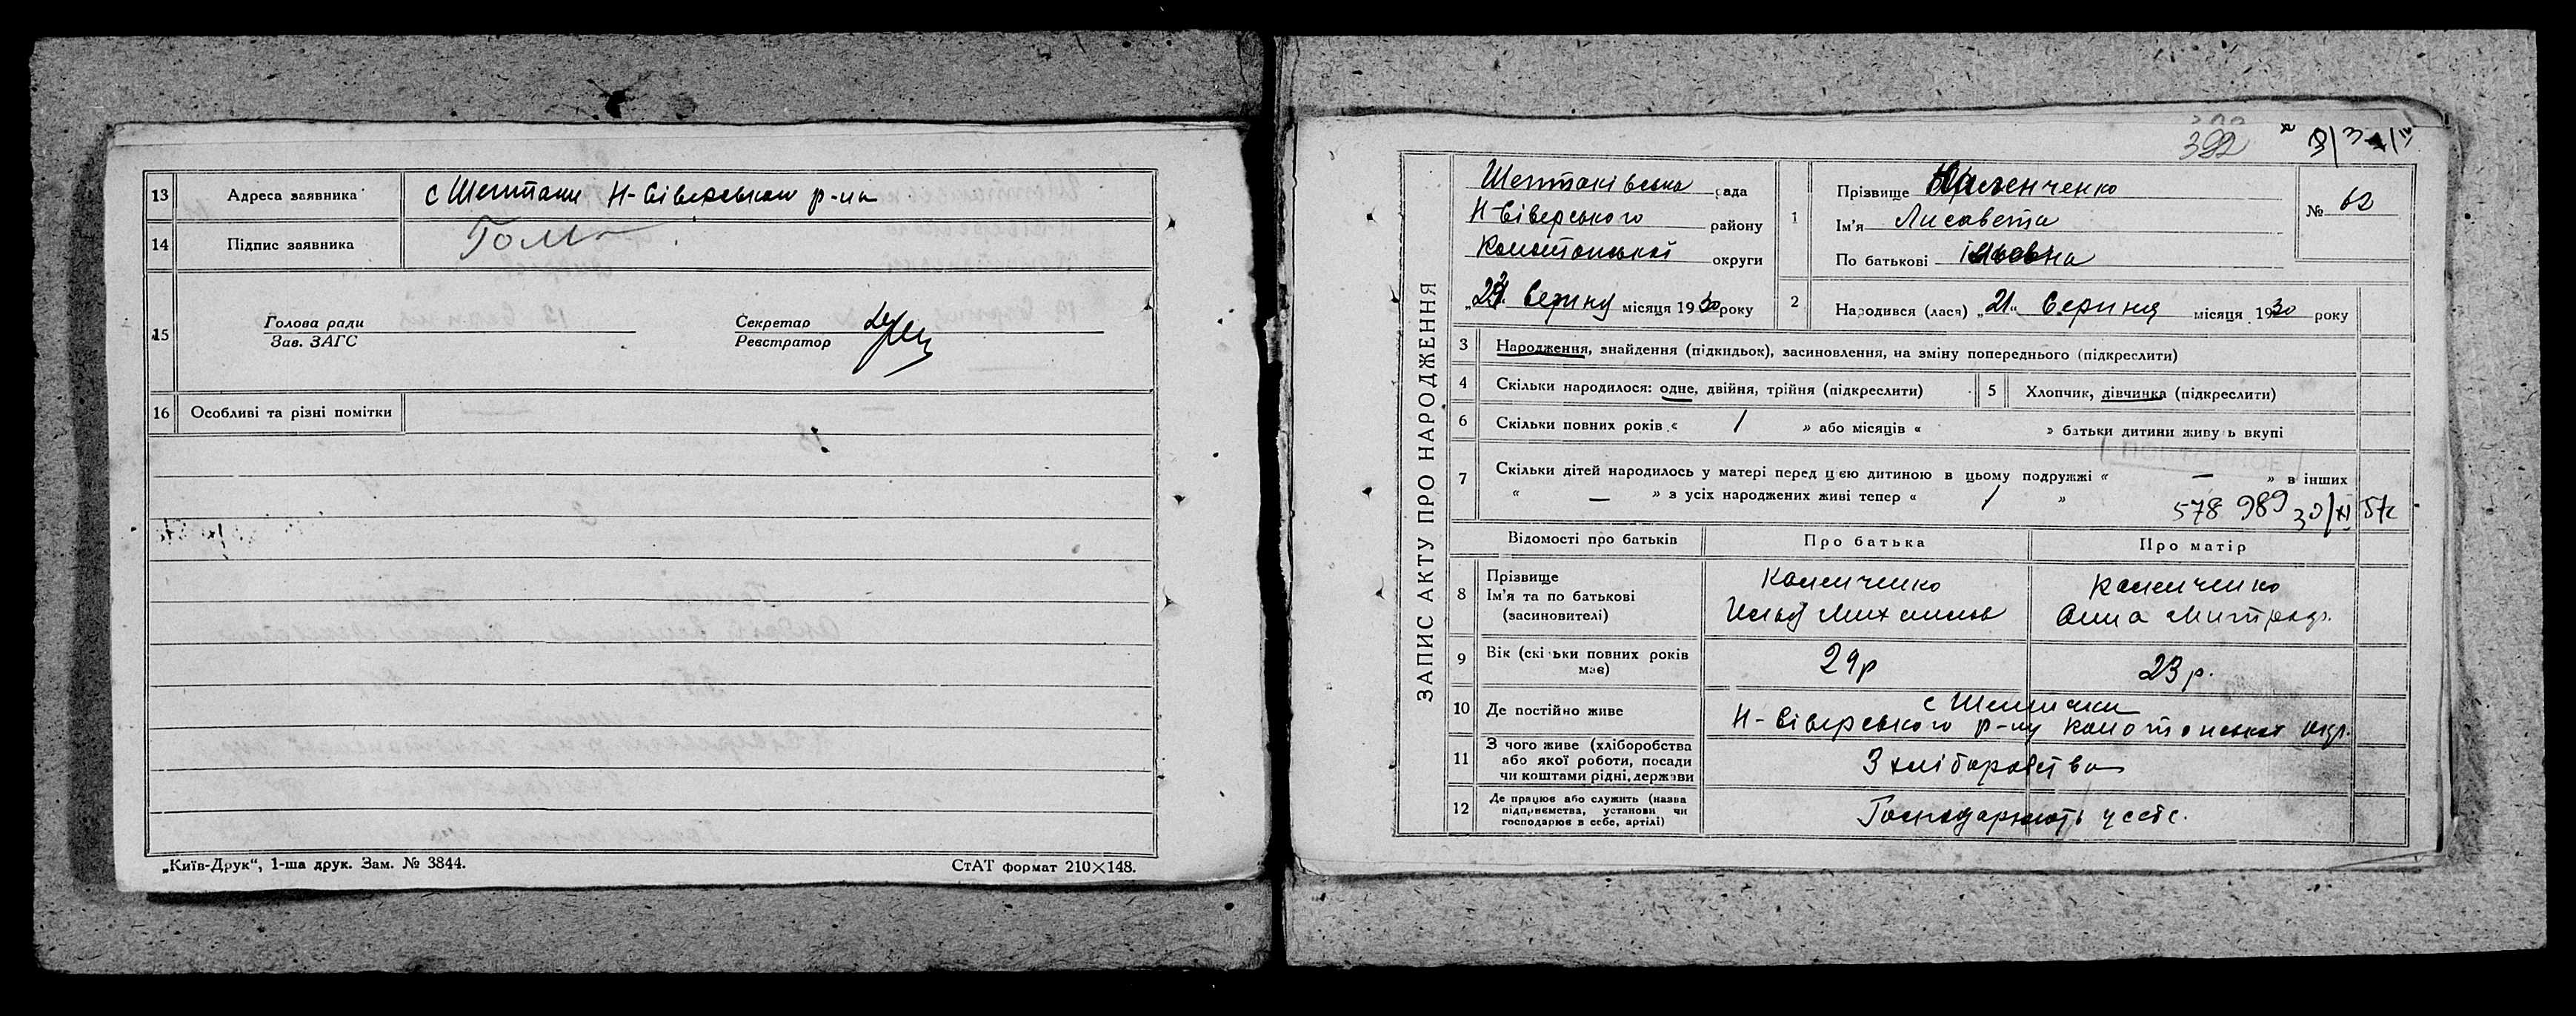 13 Адреса заявника с Шептаки Н-Сіверського р-ну
14 Підпис заявника Гом
15 Голова ради
Зав. ЗАГС
Секретар
Реєстратор
16 Особливі та різні помітки
„Київ-Друк“, 1-ша друк. Зам. № 3844.
СтАТ формат 210×148.
392
ЗАПИС АКТУ ПРО НАРОДЖЕННЯ
Шептаківська рада
Н-Сіверського району
Конотопської округи
Серпну місяця 1930 року
1 Прізвище
Ім'я Лисавета
По батькові Ільовна
№ 62
2 Народився (лася) „21“ Серпня місяця 1930 року
3 Народження, знайдення (підкидьок), засиновлення, на зміну попереднього (підкреслити)
4 Скільки народилося: одне, двійня, трійня (підкреслити)
5 Хлопчик, дівчинка (підкреслити)
6 Скільки повних років « 1 » або місяців « » батьки дитини живуть вкупі
7 Скільки дітей народилось у матері перед цією дитиною в цьому подружжі « — » в інших
« — » з усіх народжених живі тепер « 1 »
578 989 30/XI
Відомості про батьків Про батька Про матір
8 Прізвище
Ім'я та по батькові
(засновителі)
Каменченко
Илья Михайлов
Каменченко
Анна Митроф.
9 Вік (скільки повних років
має)
29р
23р.
10 Де постійно живе
с Шептаки
Н-Сіверського р-ну Конотопської окр.
11 З чого живе (хліборобства
або якої роботи, посади
чи коштами рідні, держави
З хліборобства
12 Де працює або служить (назва
підприємства, установи чи
господарює в себе, артілі)
Господарюють у себе.